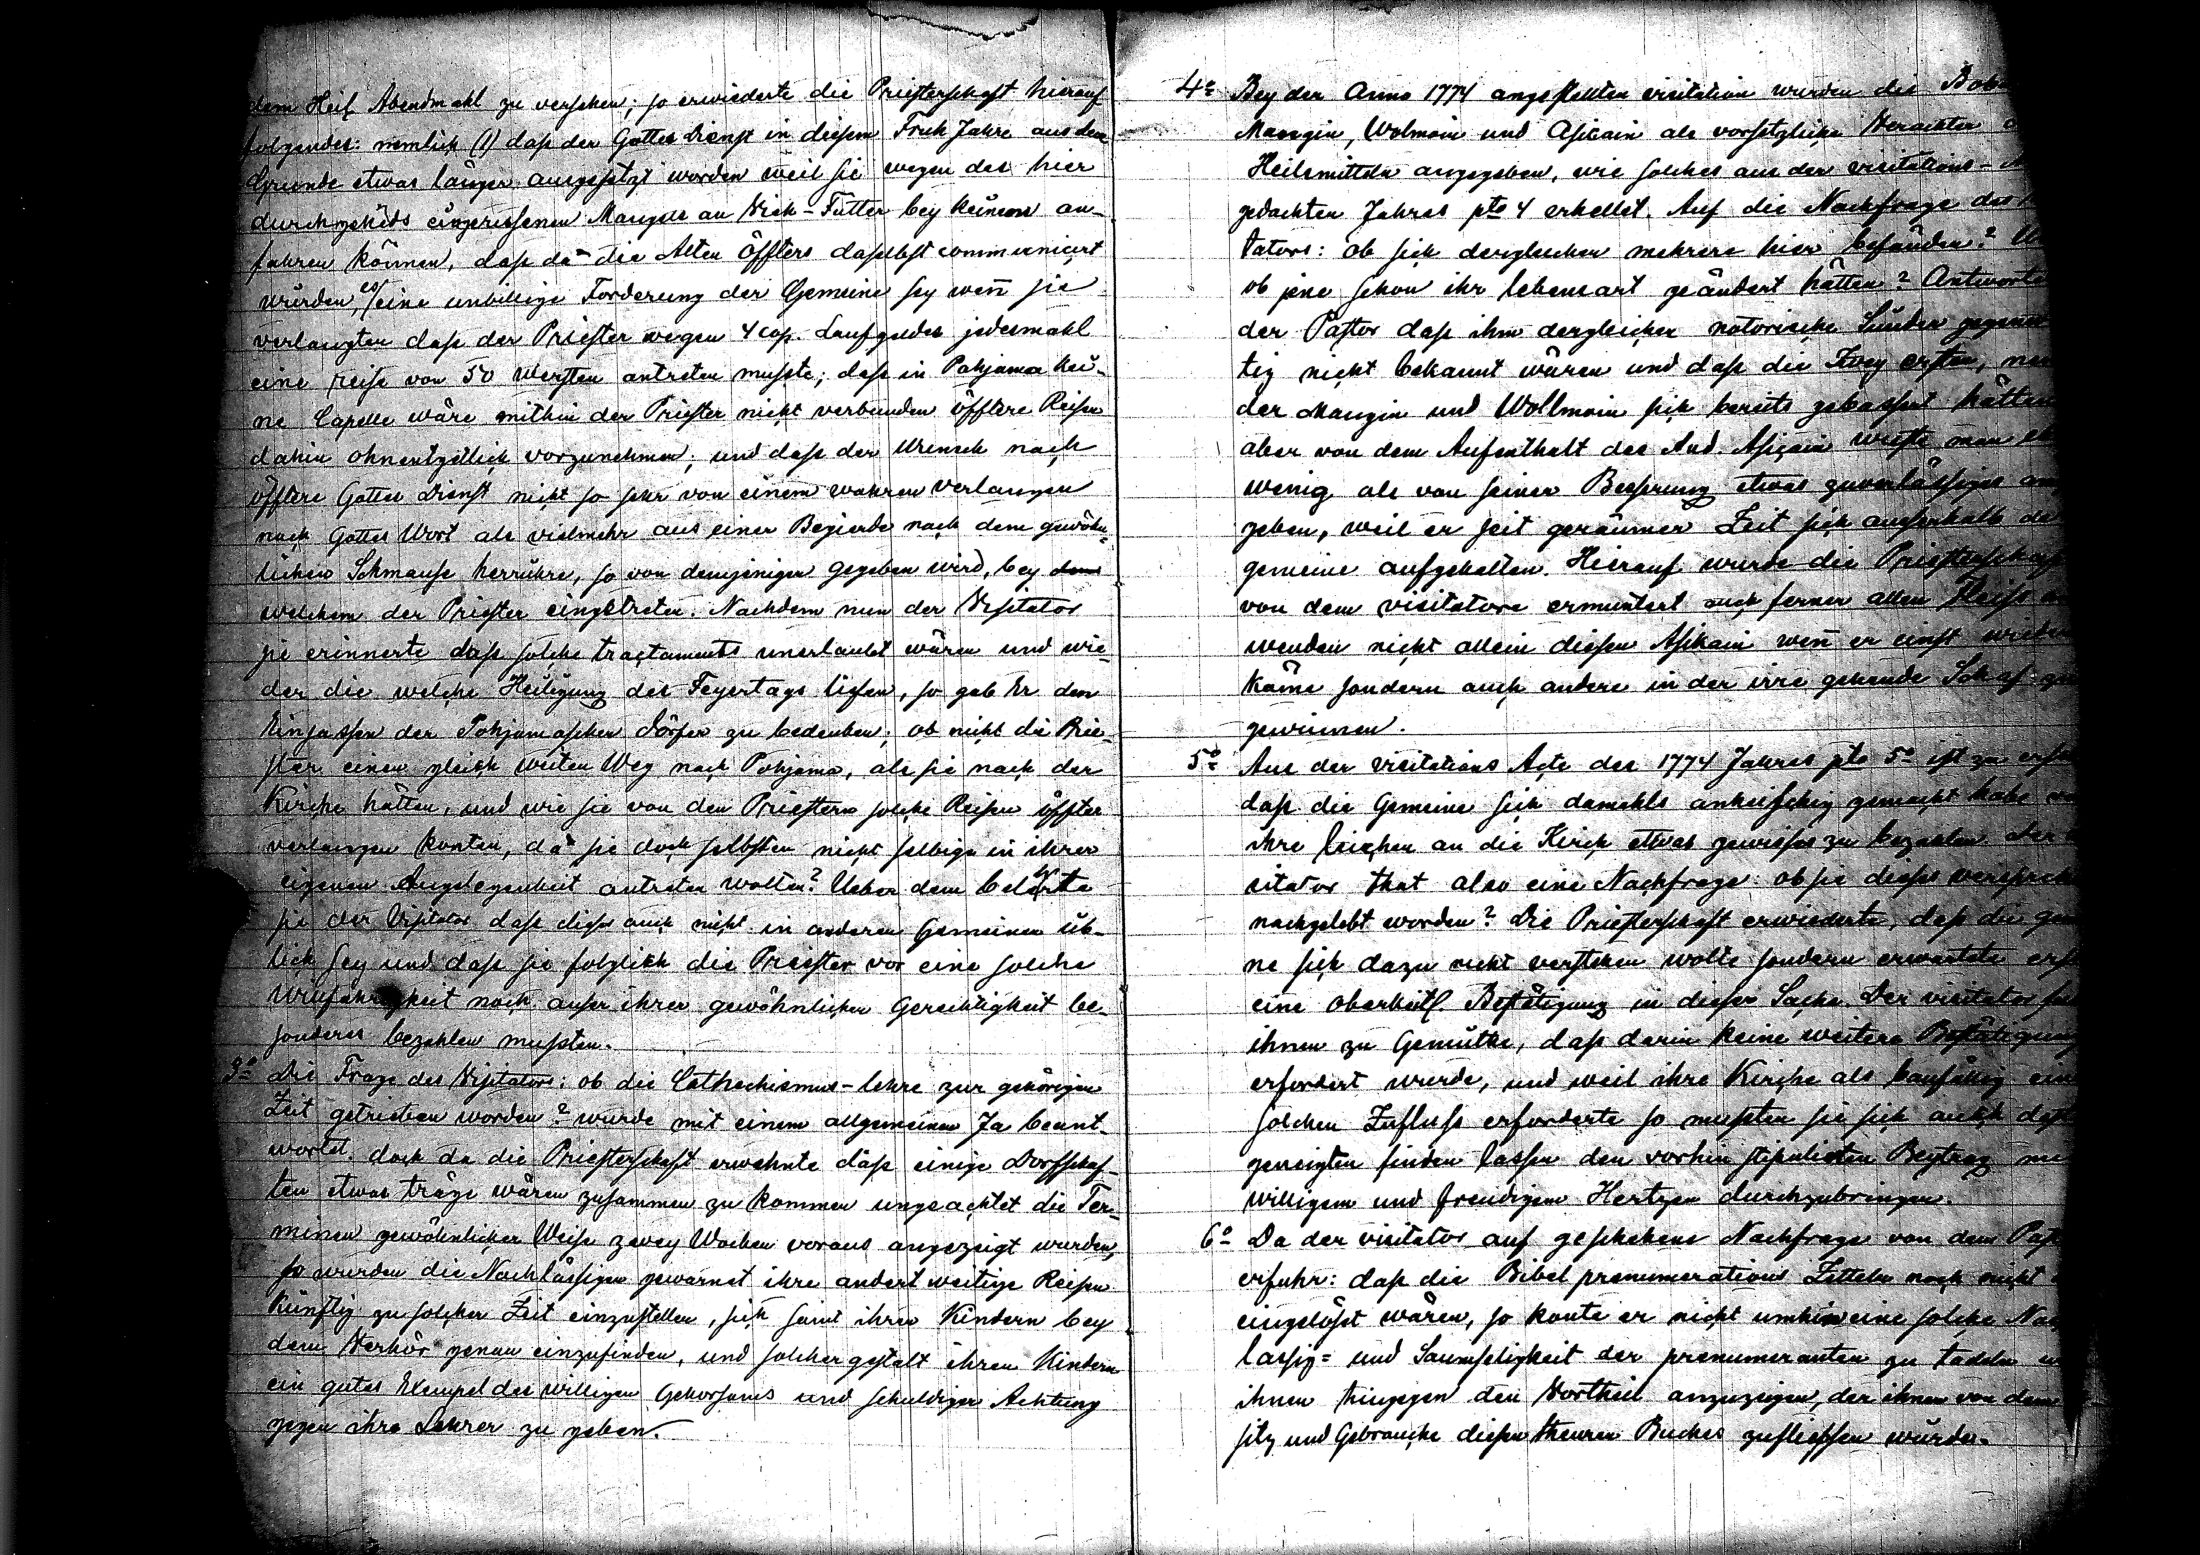 dem Heil Abendmahl zu versehen; so erwiederte die Priesterschaft hierauf
folgendes: nemlich (1) daß der Gottes Dienst in diesem Früh Jahre aus dem
Grunde etwas länger ausgesetzt worden weil sie wegen des hier
durchgehends eingerissenen Mangels an Vieh-Futter bey keinem an-
fahren können, daß da die Alten öffters daselbst communicirt
würden, es eine unbillige Forderung der Gemeine sey wen̄ sie
verlangten daß der Priester wegen 4 cop. Laufgeldes jedesmahl
eine reise von 50 Wersten antreten mußte; daß in Pohjama kei-
ne Capelle wäre mithin der Priester nicht verbunden öfftere Reisen
dahin ohnentgeltlich vorzunehmen; und daß der Wunsch nach
öfftere Gottes Dienst nicht so sehr von einem wahren verlangen
nach Gottes Wort als vielmehr aus einer Begierde nach dem gewöhn-
lichen Schmause herrühre, so von demjenigen gegeben wird, bey
welchem der Priester eingetreten. Nachdem nun der Visitator
sie erinnerte daß solche tractaments unerlaubt wären und wie-
der die welche Heiligung des Feyertags liefen, so gab Er den
Einsassen der Pohjamaschen Dörfer zu bedenken; ob nicht die Prie-
ster einen gleich weiten Weg nach Pohjama, als sie nach der
Kirche hätten, und wie sie von den Priestern solche Reisen öffter
verlangen konten, da sie doch selbsten nicht selbige in ihrer
eigenen Angelegenheit antreten wolten? Ueber dem belehrte
sie der Visitator daß dises auch nicht in anderen Gemeinen üb-
lich sey und daß sie folglich die Priester vor eine solche
noch außer ihrer gewöhnlichen Gerechtigkeit be-
sonders bezahlen mußten.
3o Die Frage des Visitators: ob die Cathechismus-lehre zur gehörigen
Zeit getrieben worden? wurde mit einem allgemeinen Ja beant-
wortet. doch da die Priesterschaft erwehnte daß einige Dorfschaf-
ten etwas träge wären zusammen zu kommen ungeachtet die Ter-
minen gewöhnlicher Weise zwey Wochen voraus angezeigt wurden,
so wurden die Nachlässigen gewarnet ihre andert weitige Reisen
künftig zu solcher Zeit einzustellen, sich samt ihren Kindern bey
dem Verhör genau einzufinden, und solcher gestalt ihren Kindern
ein gutes Exempel des willigen Gehorsams und schuldiger Achtung
gegen ihre Lehrer zu geben.
4o Bey der Anno 1774 angestellten visitation wurden die
Mangin, Wolmain und Asicain als vorsetzliche Verachter
Heilsmitteln angegeben, wie solches aus der visitations-
gedachten Jahres pto 4 erhellet. Auf die Nachfrage des
tators: ob sich dergleichen mehrere hier befänden?
ob jene schon ihr lebensart geändert hätten? Antworte
der Pastor daß ihm dergleichen notorische Sünder gegenwär
tig nicht bekannt wären und daß die Zwey ersten,
der Mangin und Wollmain sich bereits gebessert hätten
aber von dem Aufenthalt des And. Asicain wuste man
wenig als von seiner Besserung etwas zuverlässiges an
geben, weil er seit geraumer Zeit sich außerhalb
gemeine aufgehalten. Hierauf wurde die Priesterschaft
von dem visitatore ermuntert auch ferner allen Fleiß
wenden nicht allein diesen Asikain wen̄ er einst wieder
käme sondern auch andere in der irre gehende Schaf zu
gewinnen.
5o Aus der visitations Acte des 1774 Jahres pto 5o ist zu
daß die Gemeine sich damahls anheischig gemacht habe
ihre leichen an die Kirch etwas gewisses zu bezahlen der
sitator that also eine Nachfrage: ob sie dieses
nachgelebt worden? Die Priesterschaft erwiederte, daß die
ne sich dazu nicht verstehen wolte sondern erwartete
eine oberkeitl. Bestätigung in dieser Sache. Der visitator
ihnen zu Gemüthe, daß darin keine weitere Bestätigung
erfordert wurde, und weil ihre Kirche als baufällig
solchen Zufluß erforderte so mußten sie sich auch
geneigten finden lassen den vorhin stipulirten Beytrag
willigem und freudigem Hertzen durchzubringen.
6o Da der visitator auf geschehene Nachfrage von dem
erfuhr: daß die Bibel prenumerations Zetteln noch nicht
eingelößt wären, so konte er nicht umhin eine solche
lassig= und Saumseligkeit der prenumeranten zu tadeln
ihnen hingegen den Vortheil anzuzeigen, der ihnen von dem
sitz und Gebrauche dieses theuren Buches zufliessen würde.